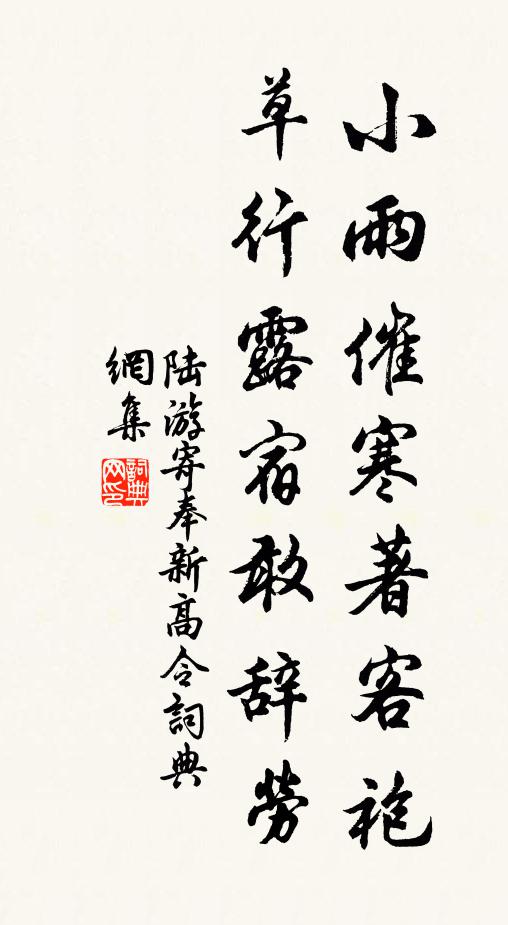 小雨催寒著客袍
草行露宿敢辞勞
陆游寄奉新高令詞典
網集
詞典
网印